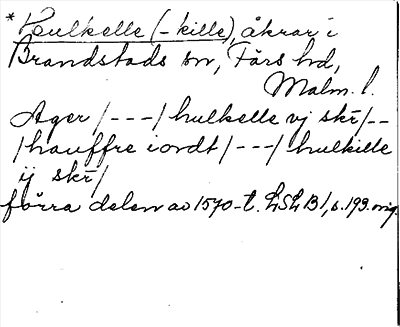 * Hulkelle (-kille), åkrar i
Brandstads sn, Färs hd,
Malm. l.
Ager /---/ hulkelle vj skr̄/--
/hauffre iordt/---/ hulkille
ij skr̄/
förra delen av 1570-t. LSLB1, s. 193. orig.